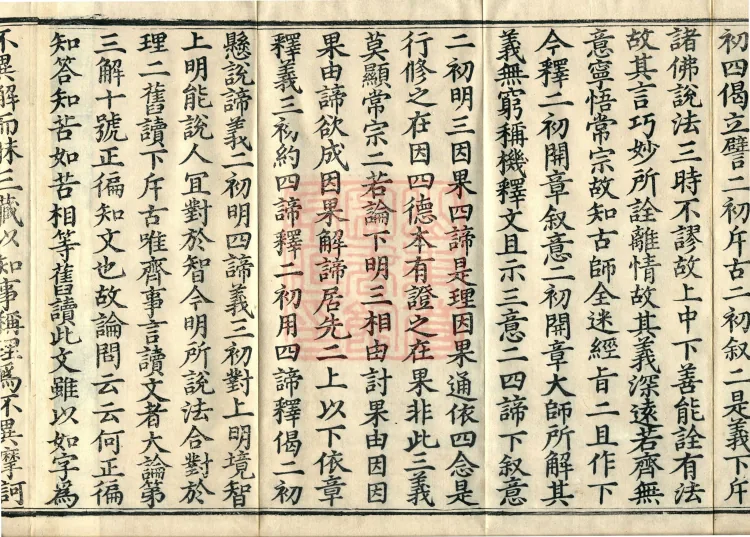 初四偈立譬二初斥古二初叙二是義下斥
諸佛說法三時不謬故上中下善能詮有法
故其言巧妙所詮離情故其義深遠若齊無
意寧悟常宗故知古師全迷經旨二且作下
今釋二初開章叙意二初開章大師所解其
義無窮稱機釋文且示三意二四諦下叙意
二初明三因果四諦是理因果通依四念是
行修之在因四德本有證之在果非此三義
莫顯常宗二若論下明三相由討果由因因
果由諦欲成因果解諦居先二上以下依章
釋義三初約四諦釋二初用四諦釋偈二初
懸說諦義二初明四諦義三初對上明境智
上明能說人冝對於智今明所說法合對於
理二舊讀下斥古唯齊事言讀文者大論第
三解十號正徧知文也故論問云云何正徧
知答知苦如苦相等舊讀此文雖以如字爲
不異解而昧三藏以知事稱理爲不異摩訶